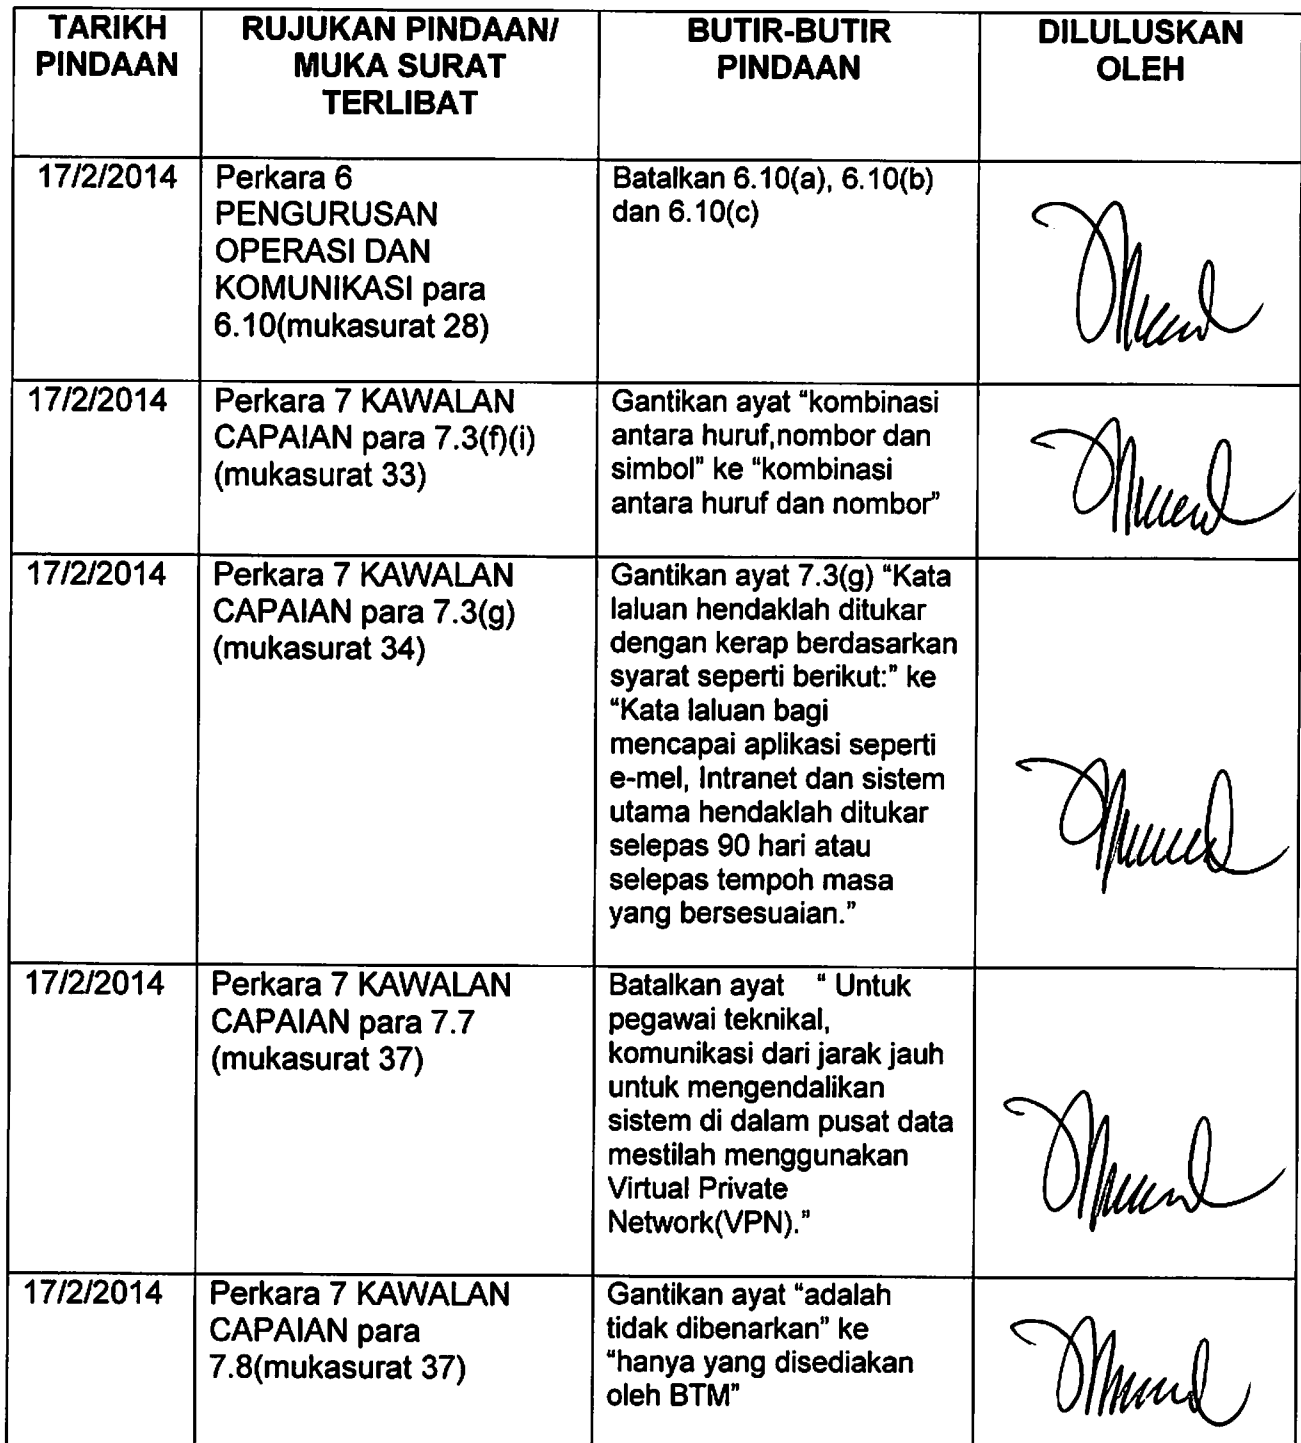 TARIKH
PINDAAN
RUJUKAN PINDAAN/
MUKA SURAT
TERLIBAT
BUTIR-BUTIR
PINDAAN
DILULUSKAN
OLEH
17/2/2014
Perkara 6
PENGURUSAN
OPERASI DAN
KOMUNIKASI para
6.10(mukasurat 28)
Batalkan 6.10(a), 6.10(b)
dan 6.10(c)
17/2/2014
Perkara 7 KAWALAN
CAPAIAN para 7.3(f)(i)
(mukasurat 33)
Gantikan ayat “kombinasi
antara huruf,nombor dan
simbol” ke “kombinasi
antara huruf dan nombor”
17/2/2014
Perkara 7 KAWALAN
CAPAIAN para 7.3(g)
(mukasurat 34)
Gantikan ayat 7.3(g) “Kata
laluan hendaklah ditukar
dengan kerap berdasarkan
syarat seperti berikut:” ke
“Kata laluan bagi
mencapai aplikasi seperti
e-mel, Intranet dan sistem
utama hendaklah ditukar
selepas 90 hari atau
selepas tempoh masa
yang bersesuaian.”
17/2/2014
Perkara 7 KAWALAN
CAPAIAN para 7.7
(mukasurat 37)
Batalkan ayat “ Untuk
pegawai teknikal,
komunikasi dari jarak jauh
untuk mengendalikan
sistem di dalam pusat data
mestilah menggunakan
Virtual Private
Network(VPN).”
17/2/2014
Perkara 7 KAWALAN
CAPAIAN para
7.8(mukasurat 37)
Gantikan ayat “adalah
tidak dibenarkan” ke
“hanya yang disediakan
oleh BTM”